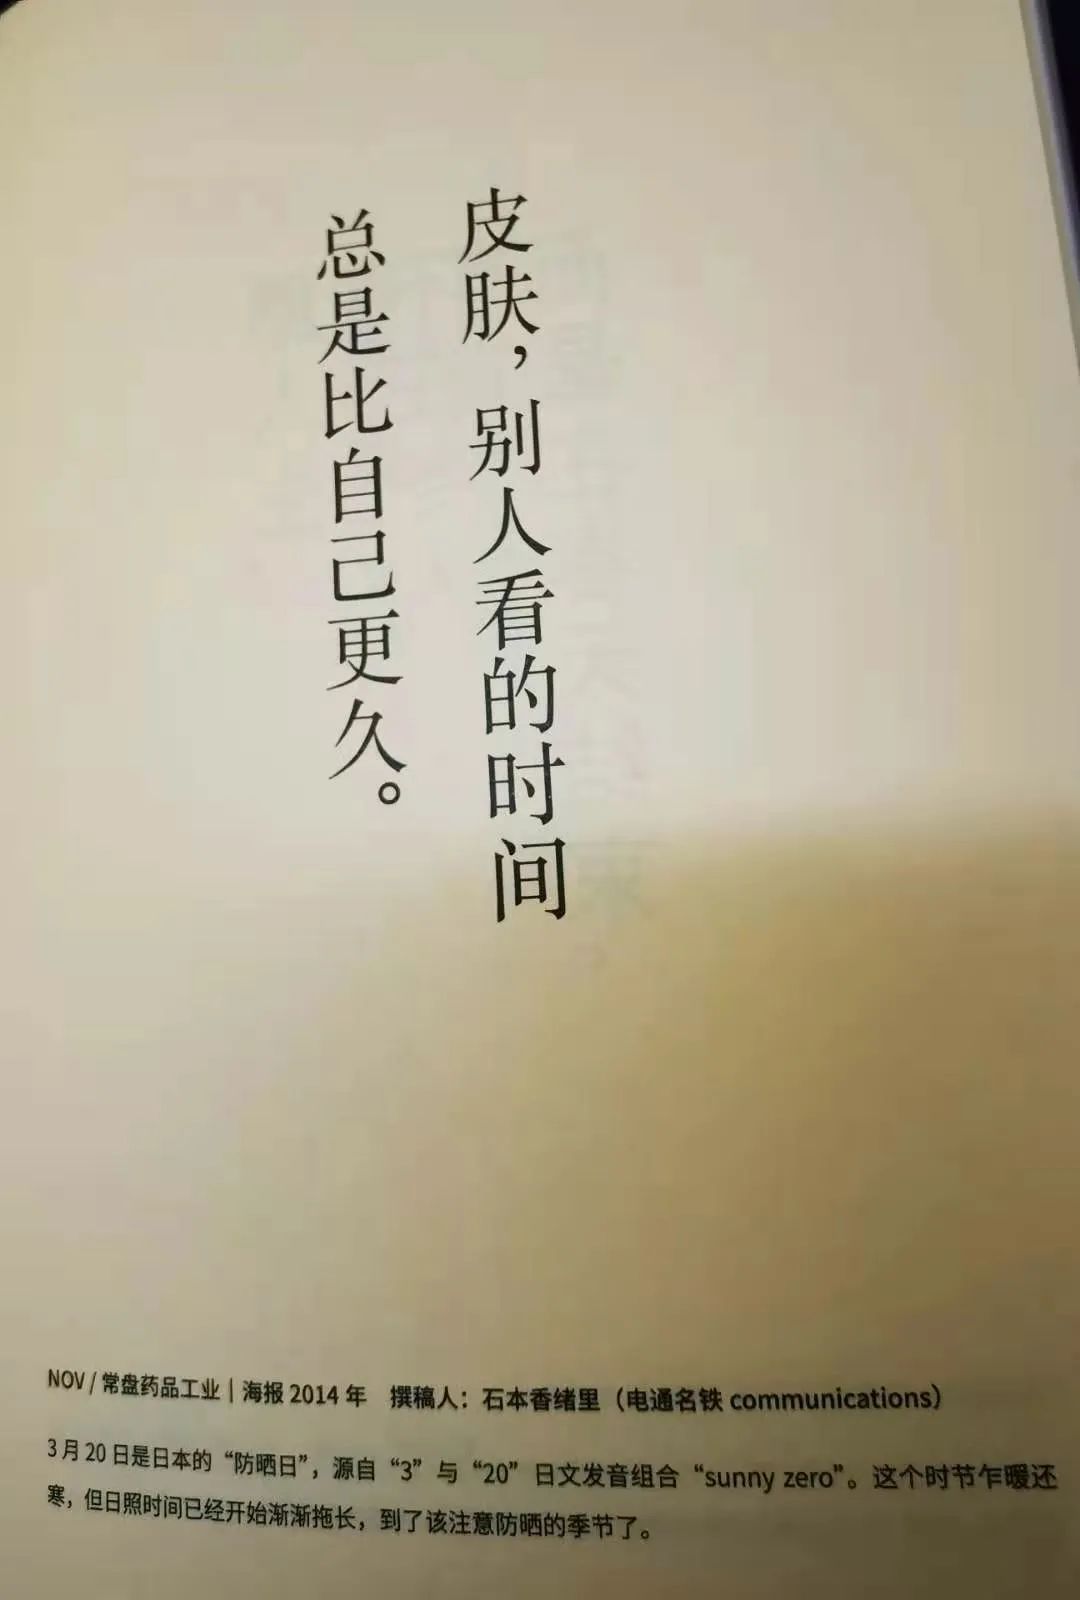 皮肤，别人看的时间
总是比自己更久。
NOV / 常盘药品工业｜海报 2014 年　撰稿人：石本香绪里（电通名铁 communications）
3 月 20 日是日本的“防晒日”，源自“3”与“20”日文发音组合“sunny zero”。这个时节乍暖还
寒，但日照时间已经开始渐渐拖长，到了该注意防晒的季节了。